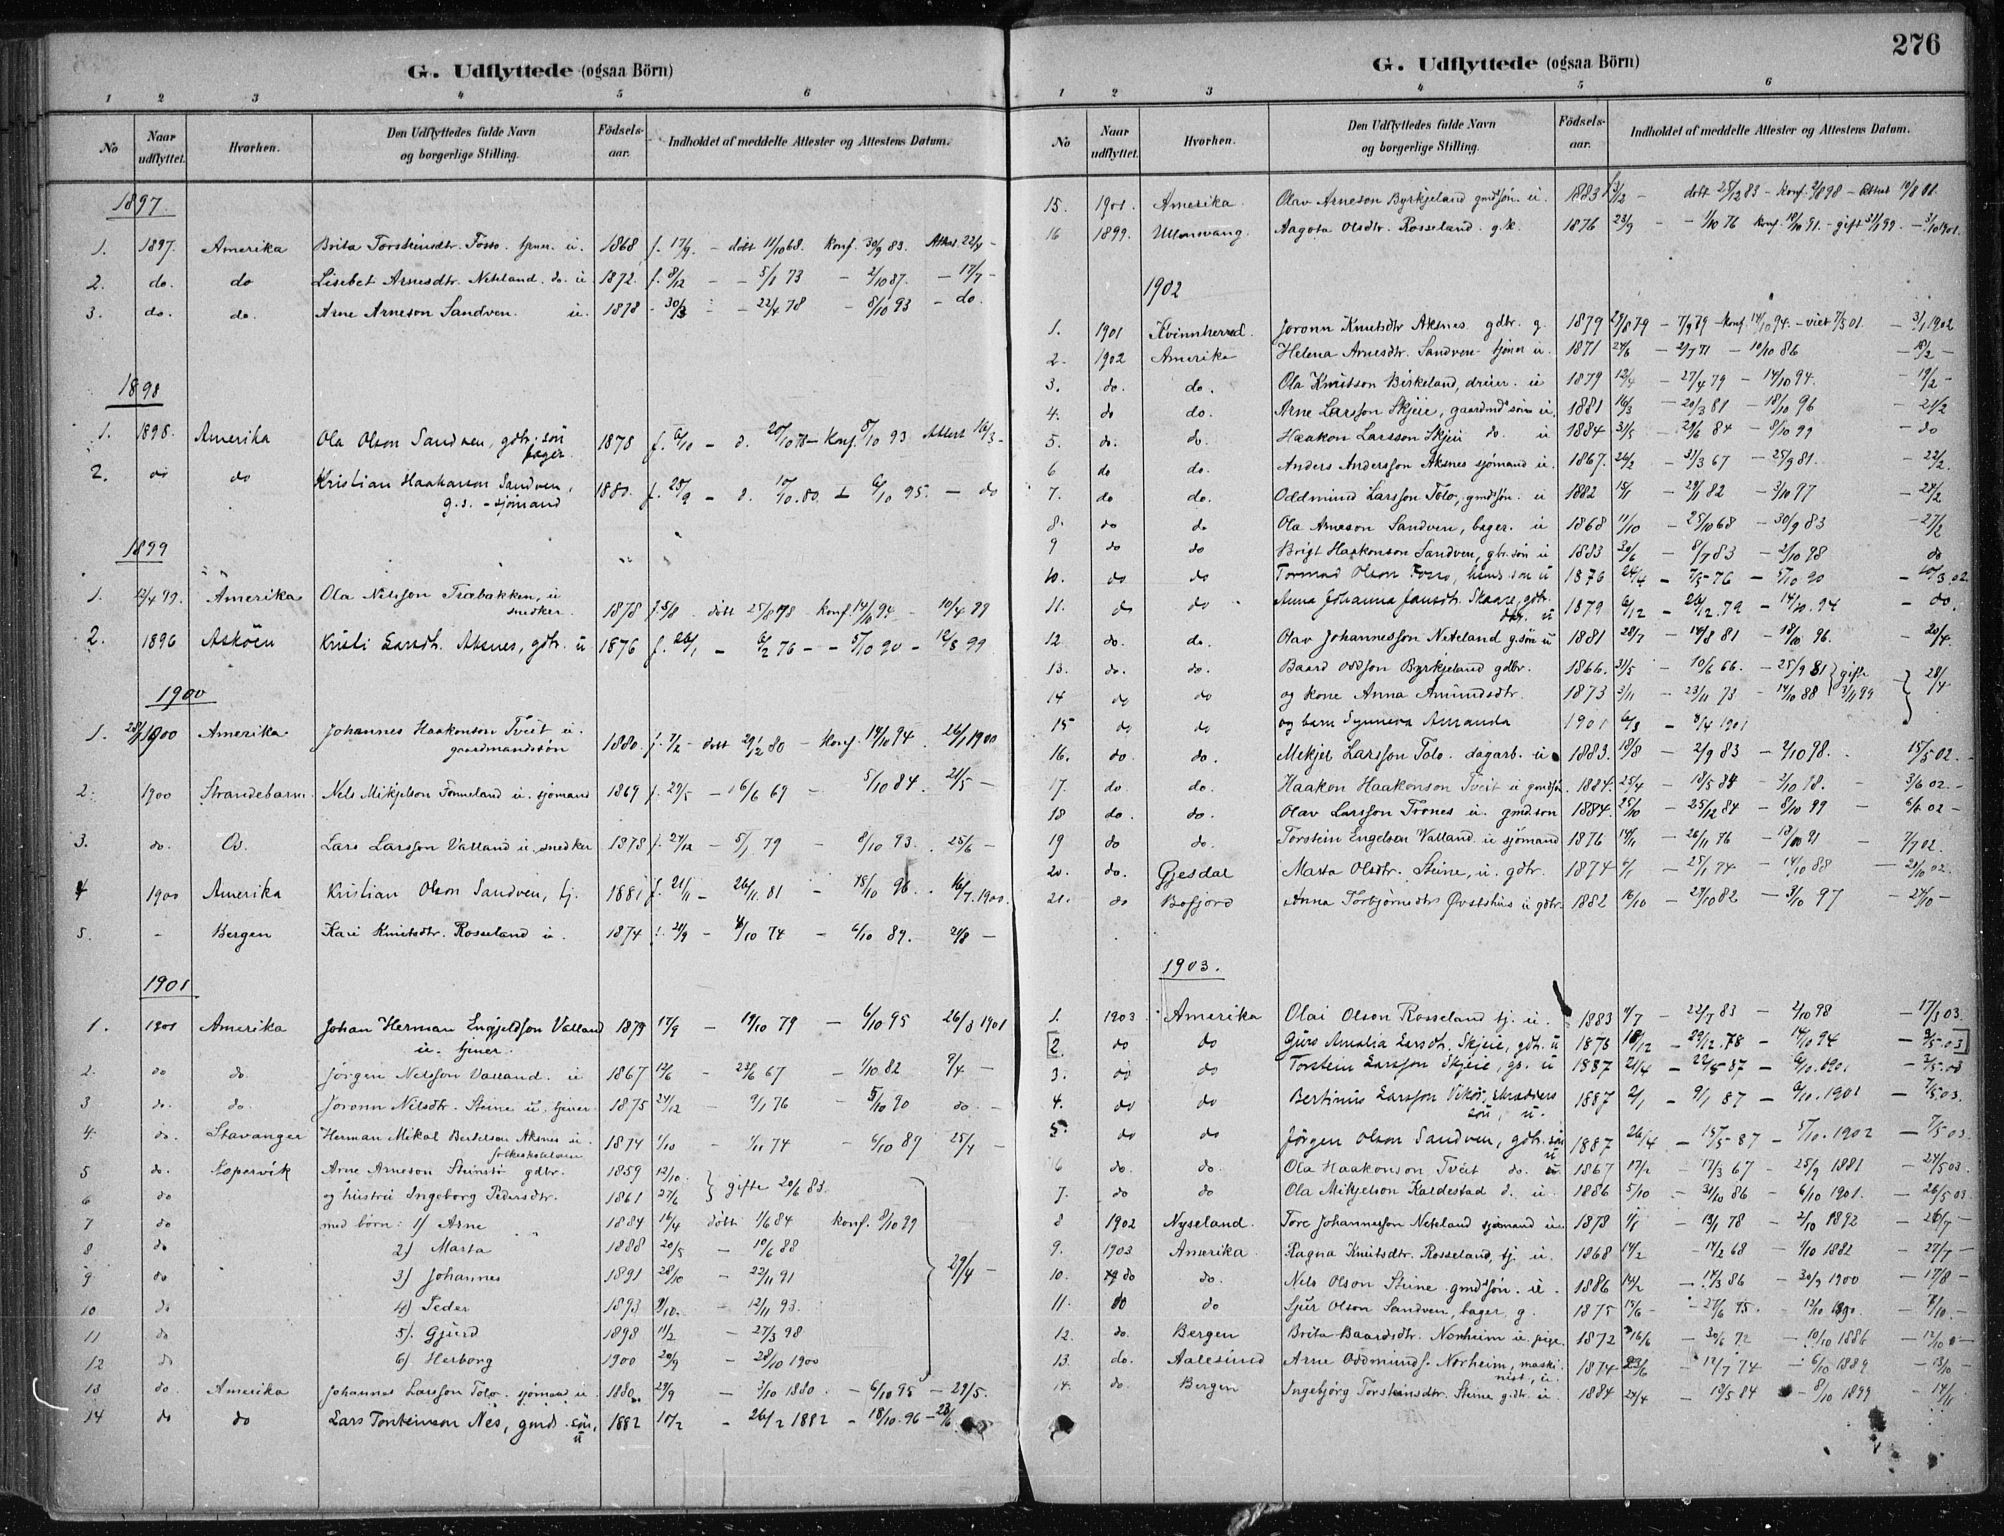 G. Udflyttede (ogsaa Börn)
1 2 3 4 5 6
No Naar udflyttet. Hvorhen. Den Udflyttedes fulde Navn og borgerlige Stilling. Födsels-aar. Indholdet af meddelte Attester og Attestens Datum.
1897.
1. 1897. Amerika Brita Torsteinsdtr. Fosso. tjener. u. 1868 f. 17/9. – döbt 11/10 68. Konf. 30/9 83. Attest 22/4 –
2. do. do Lisebet Arnesdtr. Neteland. do. u 1872. f. 8/12 – – 5/1 73 – 2/10 87. – 17/7 –
3. do. do. Arne Arneson Sandven. u. 1878 – 30/3 – 22/4 78 – 8/10 93 – do.
1898
1. 1898. Amerika Ola Olson Sandven, gdbr. sön
bager. 1878 f. 6/10 – d. 20/10 78 – Konf. 8/10 93 Attest 16/3 –
2. do do Kristian Haakonson Sandven,
g.s. – sjömand 1880. f. 28/9 – d. 10/10 80. – 6/10 95. – do
1899
1. 12/4 99. Amerika Ola Nelsson Træbakken, u
snedker. 1878 f. 5/8 döbt 25/8 78 Konf. 14/10 94 – 10/4 99
2. 1896 Asköen Kristi Larsdtr. Aksnes, gdtr. u 1876 f. 26/1 – 6/2 76 – – 5/10 90 – 12/8 99
1900
1. 28/1 1900 Amerika Johannes Haakonson Tveit u.
gaardmandssön 1880. f. 7/2 – döbt 29/2 80 – Konf. 14/10 94. 26/1 1900
2. 1900 Strandebarm Nels Mikjelson Fonneland u. sjömand 1869 f. 29/5 – 6/6 69 – 5/10 84 21/5 –
3. do. Os. Lars Larsson Valland u. snedker 1878 f. 27/12 – 5/1 79 – 8/10 93. 25/6 –
4 1900 Amerika Kristian Olson Sandven, tj. 1881 f. 21/11 – 26/11 81 – 18/10 96. 16/7 1900.
5. – Bergen Kari Knutsdtr. Rosseland u. 1874 f. 21/9 – 4/10 74 – 6/10 89. 21/8 –
1901
1. 1901 Amerika Johan Herman Engjeldson Valland
u. tjner. 1879 17/9 – 19/10 79 – 6/10 95 26/3 1901
2. do do. Jörgen Nelsson Valland. u 1867 14/6 – 23/6 67 – 1/10 82 9/4 –
3 do. do. Joronn Nelsdtr. Steine u. tjener. 1875 24/12 – 9/1 76 – 5/10 90 do. –
4. do. Stavanger Herman Mikal Bertelson Aksnes u.
folkeskolelærer 1874 1/10 – 1/11 74 – 6/10 89 25/4 –
5 do. Kopervik Arne Arneson Steinstö gdbr. 1859 12/10.
6 do og hustru Ingeborg Pedersdtr. 1861 27/6 } gifte 20/6 83.
7 do med börn: 1) Arne 1884 16/4 döbt 1/6 84 Konf. 8/10 99
8 do 2) Marta 1888 20/5 – 10/6 88
9 do 3) Johannes 1891 28/10 – 22/11 91 29/4 –
10 do 4) Peder 1893 9/10. – 12/11 93.
11 do 5). Gjurd 1898 11/2 – 27/3 98
12 do 6) Herborg 1900 20/9 – 28/10 1900
13 do. Amerika Johannes Larsson Tolo. sjömand u 1880 29/9 – 3/10 1880 – 6/10 95 – 29/5.
14 do do Lars Torsteinson Nes, gmds. sön,
u 1882 10/2 – 26/2 1882 – 18/10 96 – 23/6
276
G. Udflyttede (ogsaa Börn)
1 2 3 4 5 6
No Naar udflyttet. Hvorhen. Den Udflyttedes fulde Navn og borgerlige Stilling. Födsels-aar. Indholdet af meddelte Attester og Attestens Datum.
15. 1901. Amerika. Olav Arneson Byrkjeland gmdssön. u. 1883 – döbt 25/12 83 – Konf. 2/10 98 – Attest 10/8 01.
16 1899. Ullensvang. Aagota Olsdtr. Rosseland. g.k. 1876 23/9 – – 1/10 76 Konf. 18/10 91. – gift 31/1 99 – 3/10 1901.
1902
1. 1901 Kvinnherred. Joronn Knutsdtr Aksnes gdbr. g. 1879 29/8 79 – 7/9 79 – Konf. 14/10 94. – viet 7/5 01. – 3/1 1902
2. 1902 Amerika Helena Arnesdtr. Sandven tjener u. 1871 24/6 – 2/7 71 – 10/10 86 – 18/2 –
3. do. do. Ola Knutson Birkeland, dreier. u 1879 12/4 – 27/4 79 – 14/10 94. – 19/2 –
4. do do. Arne Larsson Skjeie, gaardmds sön u. 1881 16/3 – 20/3 81 – 18/10 96 – 21/2
5. do. do. Haakon Larsson Skjeie do. u 1884 31/5 – 29/6 84 – 8/10 99 – do
6 do do. Anders Andersson Aksnes sjömand u. 1867. 26/2 – 31/3 67 – 25/9 81. – 22/2.
7. do do. Oddmund Larsson Tolo, gmdssön. u 1882 15/1 – 29/1 82 – 3/10 97 – 24/2
8. do do Ola Arneson Sandven, bager. u 1868 11/10 – 25/10 68 – 30/9 83 – 27/2
9 do do Brigt Haakonson Sandven, gbr. sön u 1883 20/6 – 8/7 83 – 2/10 98 do
10. do do Tormod Olson Fosso, husm. sön u 1876 24/4 – 7/5 76 – 5/10 90 – 10/3 02.
11. do do Anna Johanna Jansdtr. Skaare, gdbr.
dtr. u 1879 6/12 – 26/12 79 – 14/10 94 – do.
12. do. do. Olav Johannesson Neteland g.sön u 1881 28/7 – 14/8 81 – 18/10 96. – 20/4
13. do. do. Baard Oddson Byrkjeland gdbr. 1866. 31/5 – 10/6 66. – 25/9 81 } gifte – 28/4
14 do do og kone Anna Amundsdtr. 1873 3/11 – 23/11 73 – 14/10 88 } 3/11 99
15 do do og barn Synneva Amanda 1901 6/3 – 8/4 1901
16. do. do. Mikjel Larsson Tolo. dagarb. u 1883. 18/8 – 2/9 83 – 2/10 98. – 15/5 02. –
17. do do. Haakon Haakonson Tveit u gmdsön 1884. 25/4 – 18/5 84 – 2/10 98. – 3/6 02. –
18 do. do. Olav Larsson Trones u. gmd.son 1884. 25/10 – 25/12 84 – 8/10 99 – 6/6 02 –
19 do do. Torstein Engelsen Valland u sjömand 1876 14/11 – 26/11 76 – 18/10 91 7/7 02.
20. do. Gjesdal Marta Olsdtr. Steine, u. gdtr. 1874 6/1 – 25/1 74 – 14/10 88 – 21/10 02.
21. do Bofjord Anna Torbjörnsdtr Øvsthus u gdtr. 1882 16/10 – 29/10 82 – 3/10 97 – 24/10 –
1903.
1. 1903. Amerika Olai Olson Rosseland tj. u. 1883 4/7 – 22/7 83 – 2/10 98 – 17/3 03.
[2. do do Guro Amalia Larsdtr. Skjeie, gdtr. u 1878 18/12 – 29/12 78 – 14/10 94 – 2/5 03]
3. do do Torstein Larsson Skjeie, gs. u 1887 21/4 – 22/5 87 – 6/10 1901 – 2/5 03
4. do do Bertinius Larsson Vikör, skrædders
sön, u. 1887 2/1 – 9/1 87 – 6/10. 1901 – 7/5 03.
5. do do Jörgen Olson Sandven, gdbr. sön
u 1887 26/4 – 15/5 87 – 5/10. 1902 – 7/5 03.
6 do. do. Ola Haakonson Tveit do. u 1867 17/2 – 17/3 67 – 25/9 1881 – 24/5 03.
7. do do Ola Mikjelson Kaldestad d. u. 1886 5/10 – 31/10 86 – 6/10 1901. – 26/5 03.
8 1902 Nyseland. Tore Johannesson Neteland sjömand u. 1878 1/1 – 13/1 78 – 2/10 1892 – 26/7 –
9. 1903 Amerika. Ragna Knutsdtr. Rosseland, tj. u. 1868 14/2 – 14/2 68 – 1/10 1882 – 27/7 –
10. do do. Nels Olson Steine gmdssön. u. 1886 14/2 – 17/3 86 – 30/9 1900 – 17/8 –
11. do do Sjur Olson Sandven, bager, g. 1875 14/6 – – 27/6 75. – 12/10 1890. – 7/10. –
12. do. Bergen Brita Baardsdtr. Norheim u. pige 1872 16/6 – 30/6 72 – 10/10 1886 – 12/10 0 –
13. do. Aalesund Arne Oddmunds. Norheim, maski-
nist, u. 1874 23/6 – 12/7 74 – 6/10 1889 – 13/10 –
14. do Bergen Ingebjörg Torsteinsdtr. Steine gdtr. u. 1884 24/4 – 18/5 84 – 8/10 1899 – 14/11